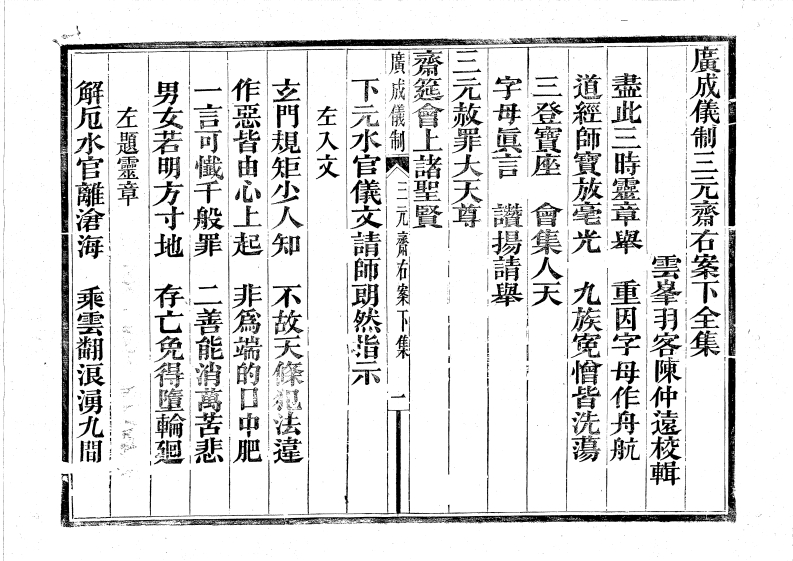 廣成儀制三元齋右案下全集
雲峯羽客陳仲遠校輯
盡此三時靈章舉　重因字母作舟航
道經師寶放毫光　九族寃憎皆洗蕩
三登寶座　會集人天
字母眞言　讚揚請舉
三元赦罪大天尊
齋筵會上諸聖賢
廣成儀制　三元齋右案下集　一
下元水官儀文請師朗然指示
左入文
玄門規矩少人知　不故天條犯法違
作惡皆由心上起　非爲端的口中肥
一言可懺千般罪　二善能消萬苦悲
男女若明方寸地　存亡免得墮輪廻
左題靈章
解厄水官離滄海　乘雲翻浪湧九間